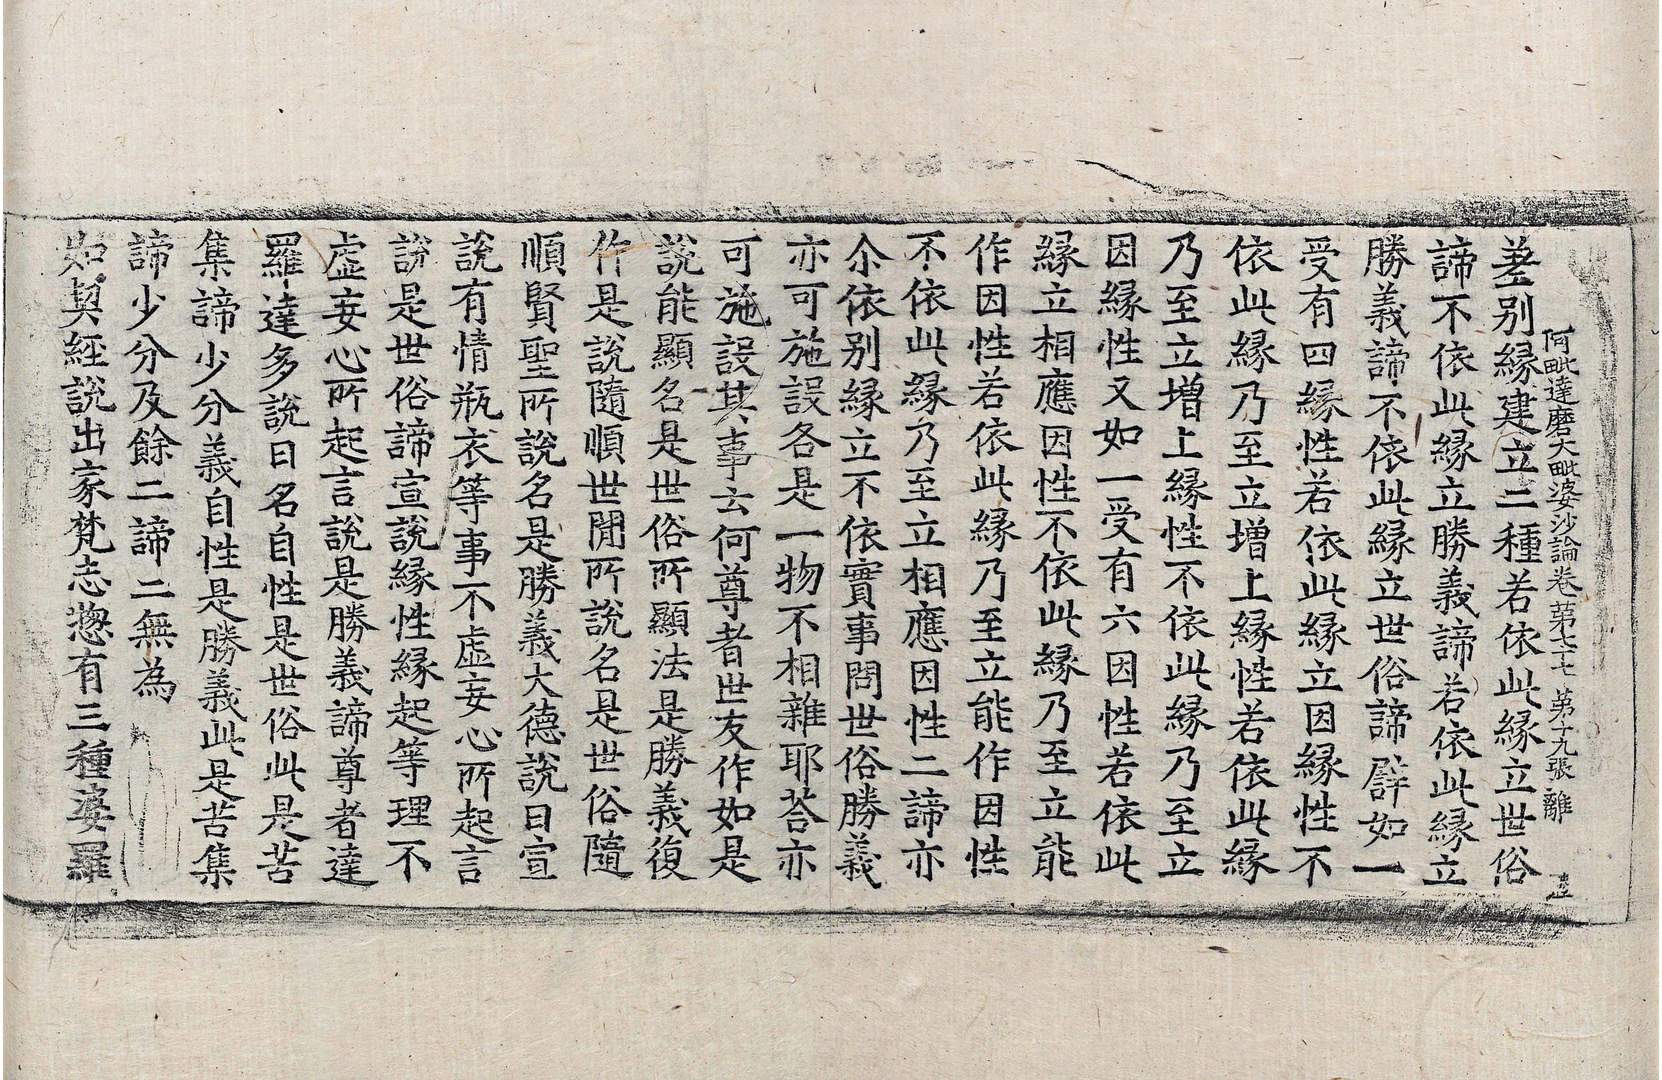 阿毗達磨大毗婆沙論卷第七十七 第十九張 離
差别縁建立二種若依此縁立世俗
諦不依此縁立勝義諦若依此縁立
勝義諦不依此縁立世俗諦譬如一
受有四縁性若依此縁立因縁性不
依此縁乃至立增上縁性若依此縁
乃至立增上縁性不依此縁乃至立
因縁性又如一受有六因性若依此
縁立相應因性不依此縁乃至立能
作因性若依此縁乃至立能作因性
不依此縁乃至立相應因性二諦亦
尒依别縁立不依實事問世俗勝義
亦可施設各是一物不相雜耶荅亦
可施設其事云何尊者世友作如是
說能顯名是世俗所顯法是勝義復
作是說隨順世閒所說名是世俗隨
順賢聖所說名是勝義大德說曰宣
說有情瓶衣等事不虛妄心所起言
說是世俗諦宣說縁性縁起等理不
虛妄心所起言說是勝義諦尊者達
羅達多說曰名自性是世俗此是苦
集諦少分義自性是勝義此是苦集
諦少分及餘二諦二無為
如契經說出家梵志惣有三種婆羅